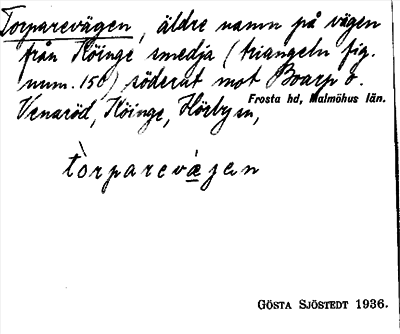 Torparevägen, äldre namn på vägen
från Köinge smedja (triangeln fig.
num. 150) söderut mot Boarp o.
Venaröd, Köinge, Hörby sn,
Frosta hd, Malmöhus län.
tòrparevä́gen
GÖSTA SJÖSTEDT 1936.